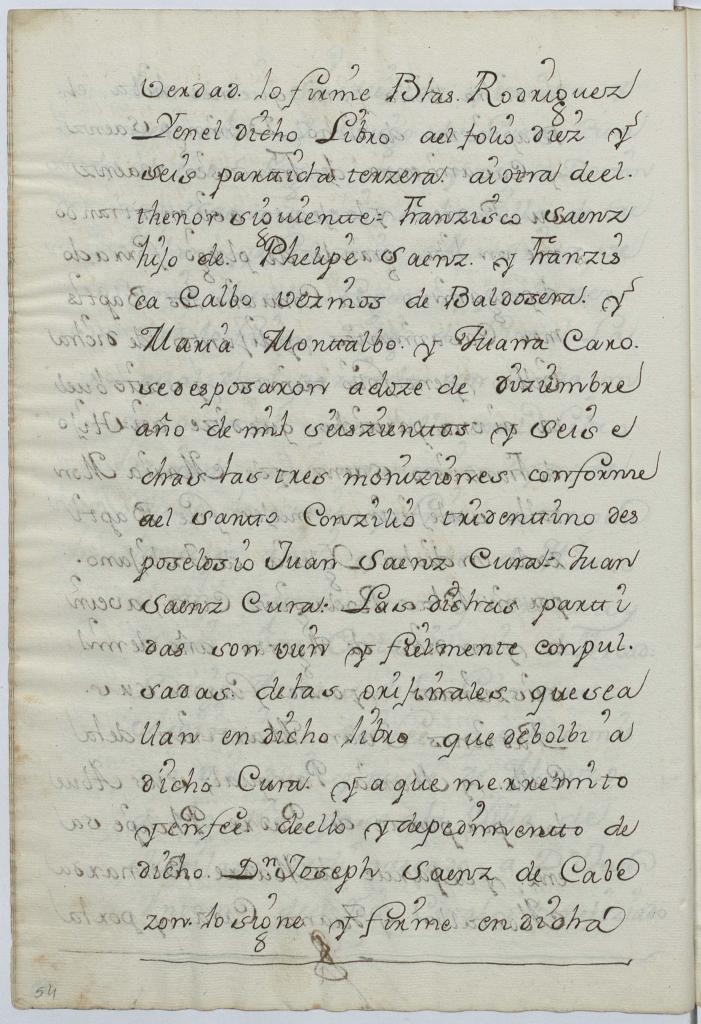 verdad. lo firme Blas. Rodriguez
Yenel dicho Libro ael folio diez y
seis parttida terzera. ai otra deel.
thenor siguiente= Franzisco Saenz
hijo de. Phelipe Saenz. y Franzis
ca Calbo vezinos de Baldosera. y
Maria Monttalbo. y Juana Caro.
sedesposaron adoze de Diziembre
año de mil seiszienttos y seis e
chas las tres moniziones conforme
ael Santto Conzilio tridenttino des
poselosio Juan Saenz Cura= Juan
Saenz Cura= Las dichas partti
das son vien y fielmente conpul.
sadas. delas orijinales quesea
llan en dicho libro que debolbi a
dicho Cura. y a que merremito
y enfee deello y depedimientto de
dicho. Dn Joseph Saenz de Cabe
zon. lo signe y firme en dicha
54